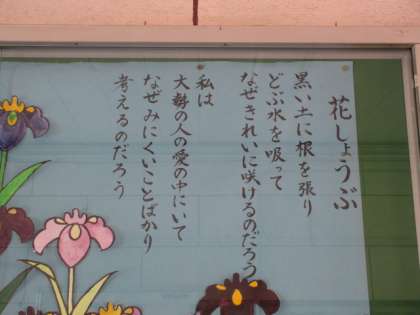 花しょうぶ
黒い土に根を張り
どぶ水を吸って
なぜきれいに咲けるのだろう
私は
大勢の人の愛の中にいて
なぜみにくいことばかり
考えるのだろう